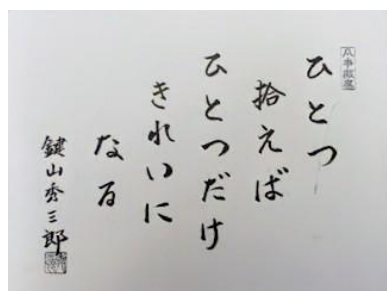 ひとつ
拾えば
ひとつだけ
きれいに
なる
鍵山秀三郎